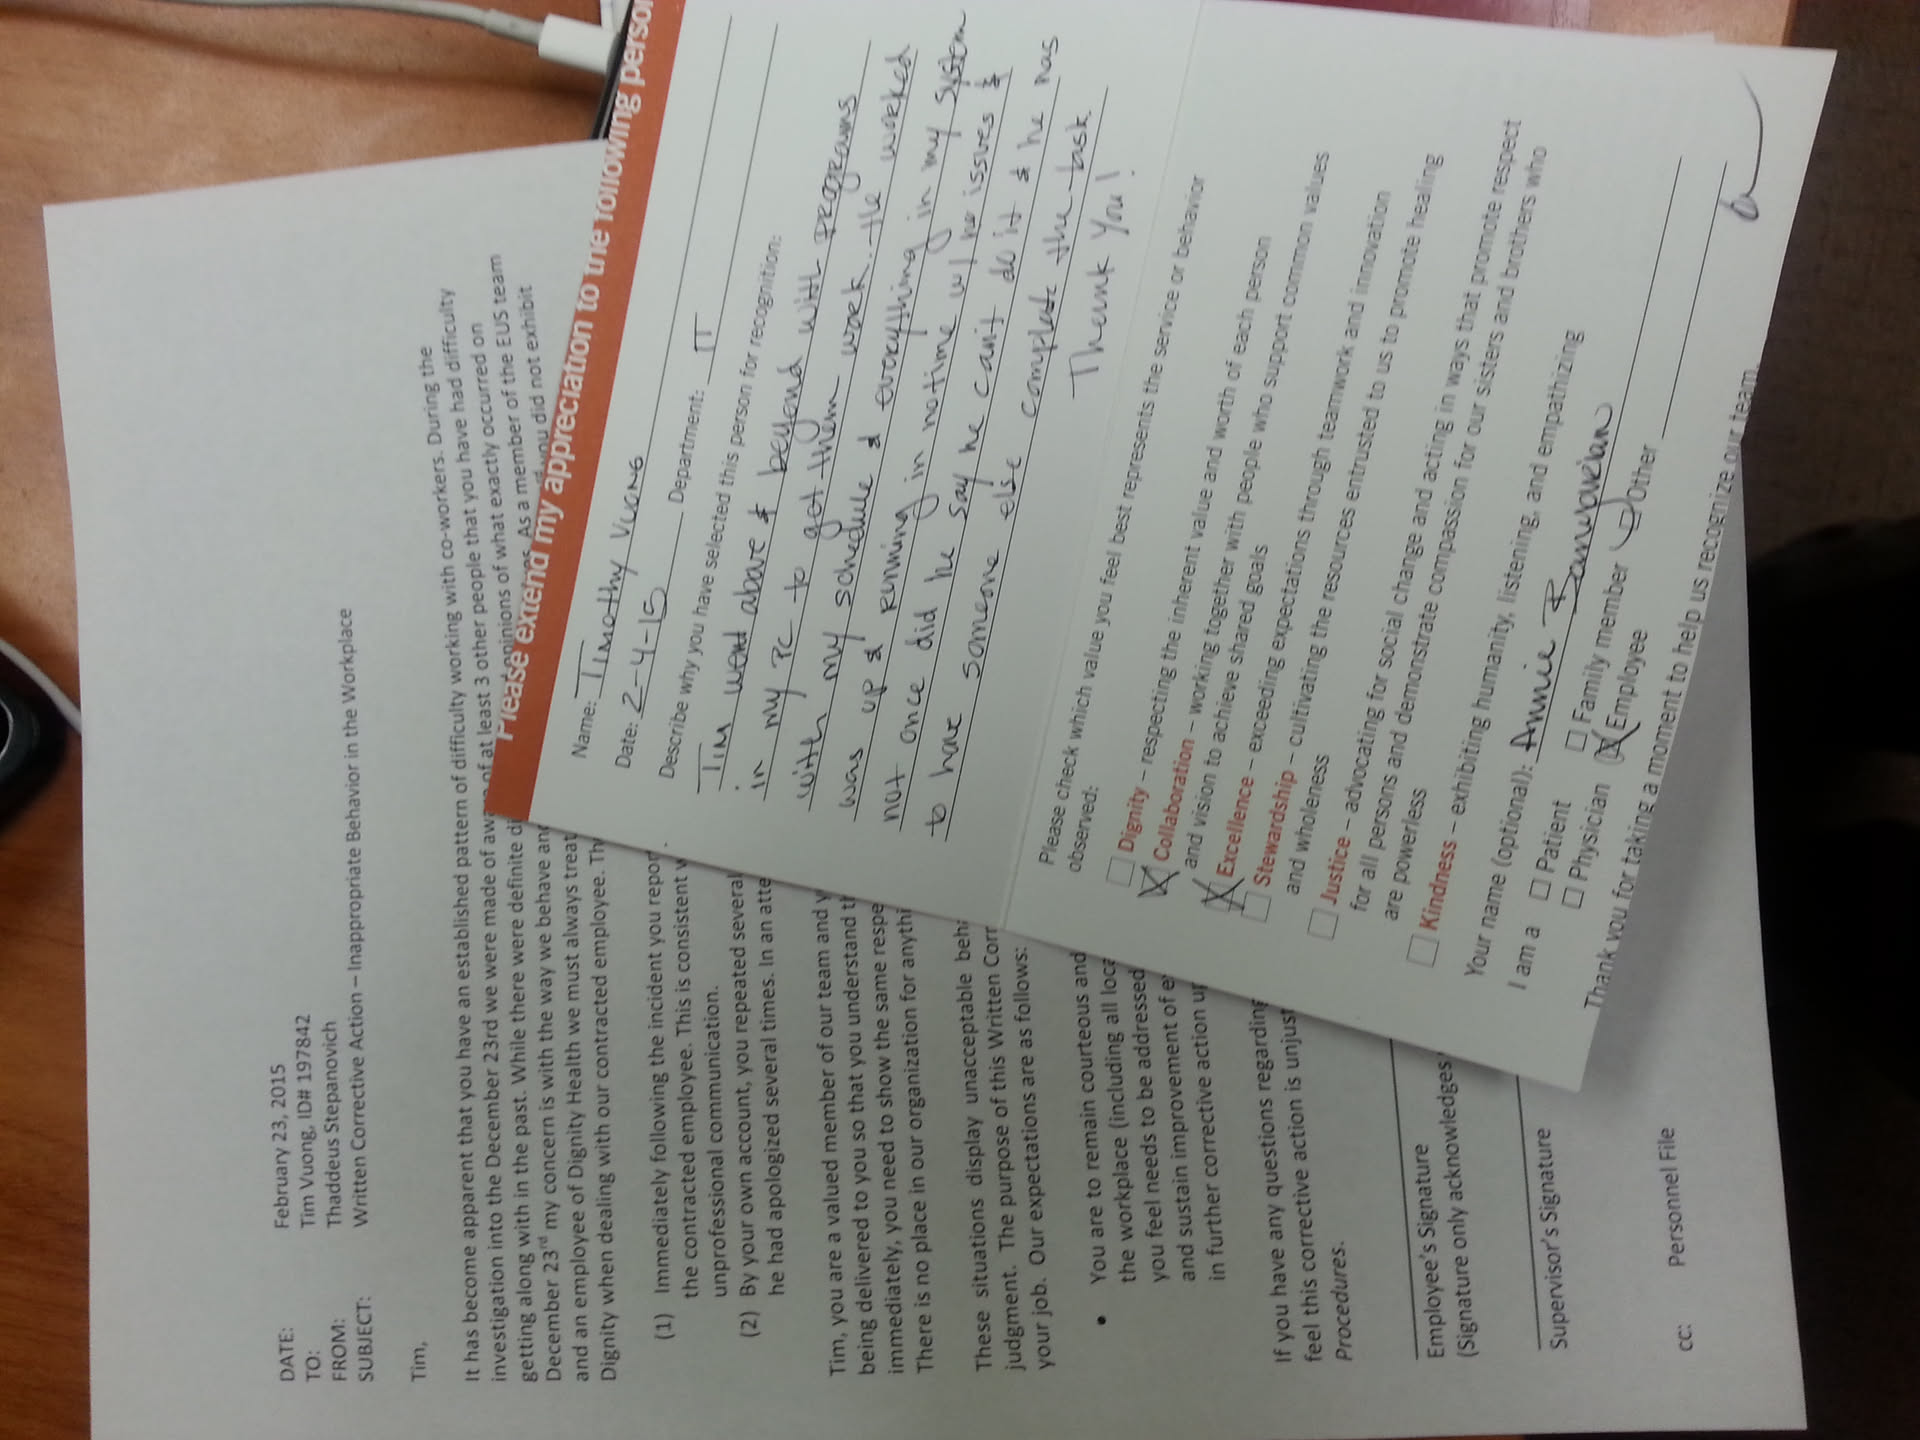 DATE: February 23, 2015
TO: Tim Vuong, ID# 197842
FROM: Thaddeus Stepanovich
SUBJECT: Written Corrective Action – Inappropriate Behavior in the Workplace
Tim,
It has become apparent that you have an established pattern of difficulty working with co-workers. During the
investigation into the December 23rd we were made of aware of at least 3 other people that you have had difficulty
getting along with in the past. While there were definite opinions of what exactly occurred on
December 23rd my concern is with the way we behave and As a member of the EUS team
and an employee of Dignity Health we must always treat you did not exhibit
Dignity when dealing with our contracted employee.
(1) Immediately following the incident you
the contracted employee. This is consistent
unprofessional communication.
(2) By your own account, you repeated several
he had apologized several times. In an
Tim, you are a valued member of our team and
being delivered to you so that you understand
immediately, you need to show the same
There is no place in our organization for
These situations display unacceptable
judgment. The purpose of this Written
your job. Our expectations are as follows:
• You are to remain courteous and
the workplace (including all
you feel needs to be addressed
and sustain improvement of
in further corrective action
If you have any questions regarding
feel this corrective action is
Procedures.
Employee's Signature
(Signature only acknowledges
Supervisor's Signature
cc: Personnel File
Please extend my appreciation to the following person
Name: Timothy Vuong
Date: 2-4-15 Department: IT
Describe why you have selected this person for recognition:
Tim went above & beyond with programs
in my PC to get them work. He worked
with my schedule & everything in my system
was up & running in no time w/ no issues &
not once did he say he can't do it & he has
to have someone else complete the task.
Thank you!
Please check which value you feel best represents the service or behavior
observed:
Dignity – respecting the inherent value and worth of each person
Collaboration – working together with people who support common values
and vision to achieve shared goals
Excellence – exceeding expectations through teamwork and innovation
Stewardship – cultivating the resources entrusted to us to promote healing
and wholeness
Justice – advocating for social change and acting in ways that promote respect
for all persons and demonstrate compassion for our sisters and brothers who
are powerless
Kindness – exhibiting humanity, listening, and empathizing
Your name (optional): Annie
I am a Patient Family member Other
Physician Employee
Thank you for taking a moment to help us recognize our team.